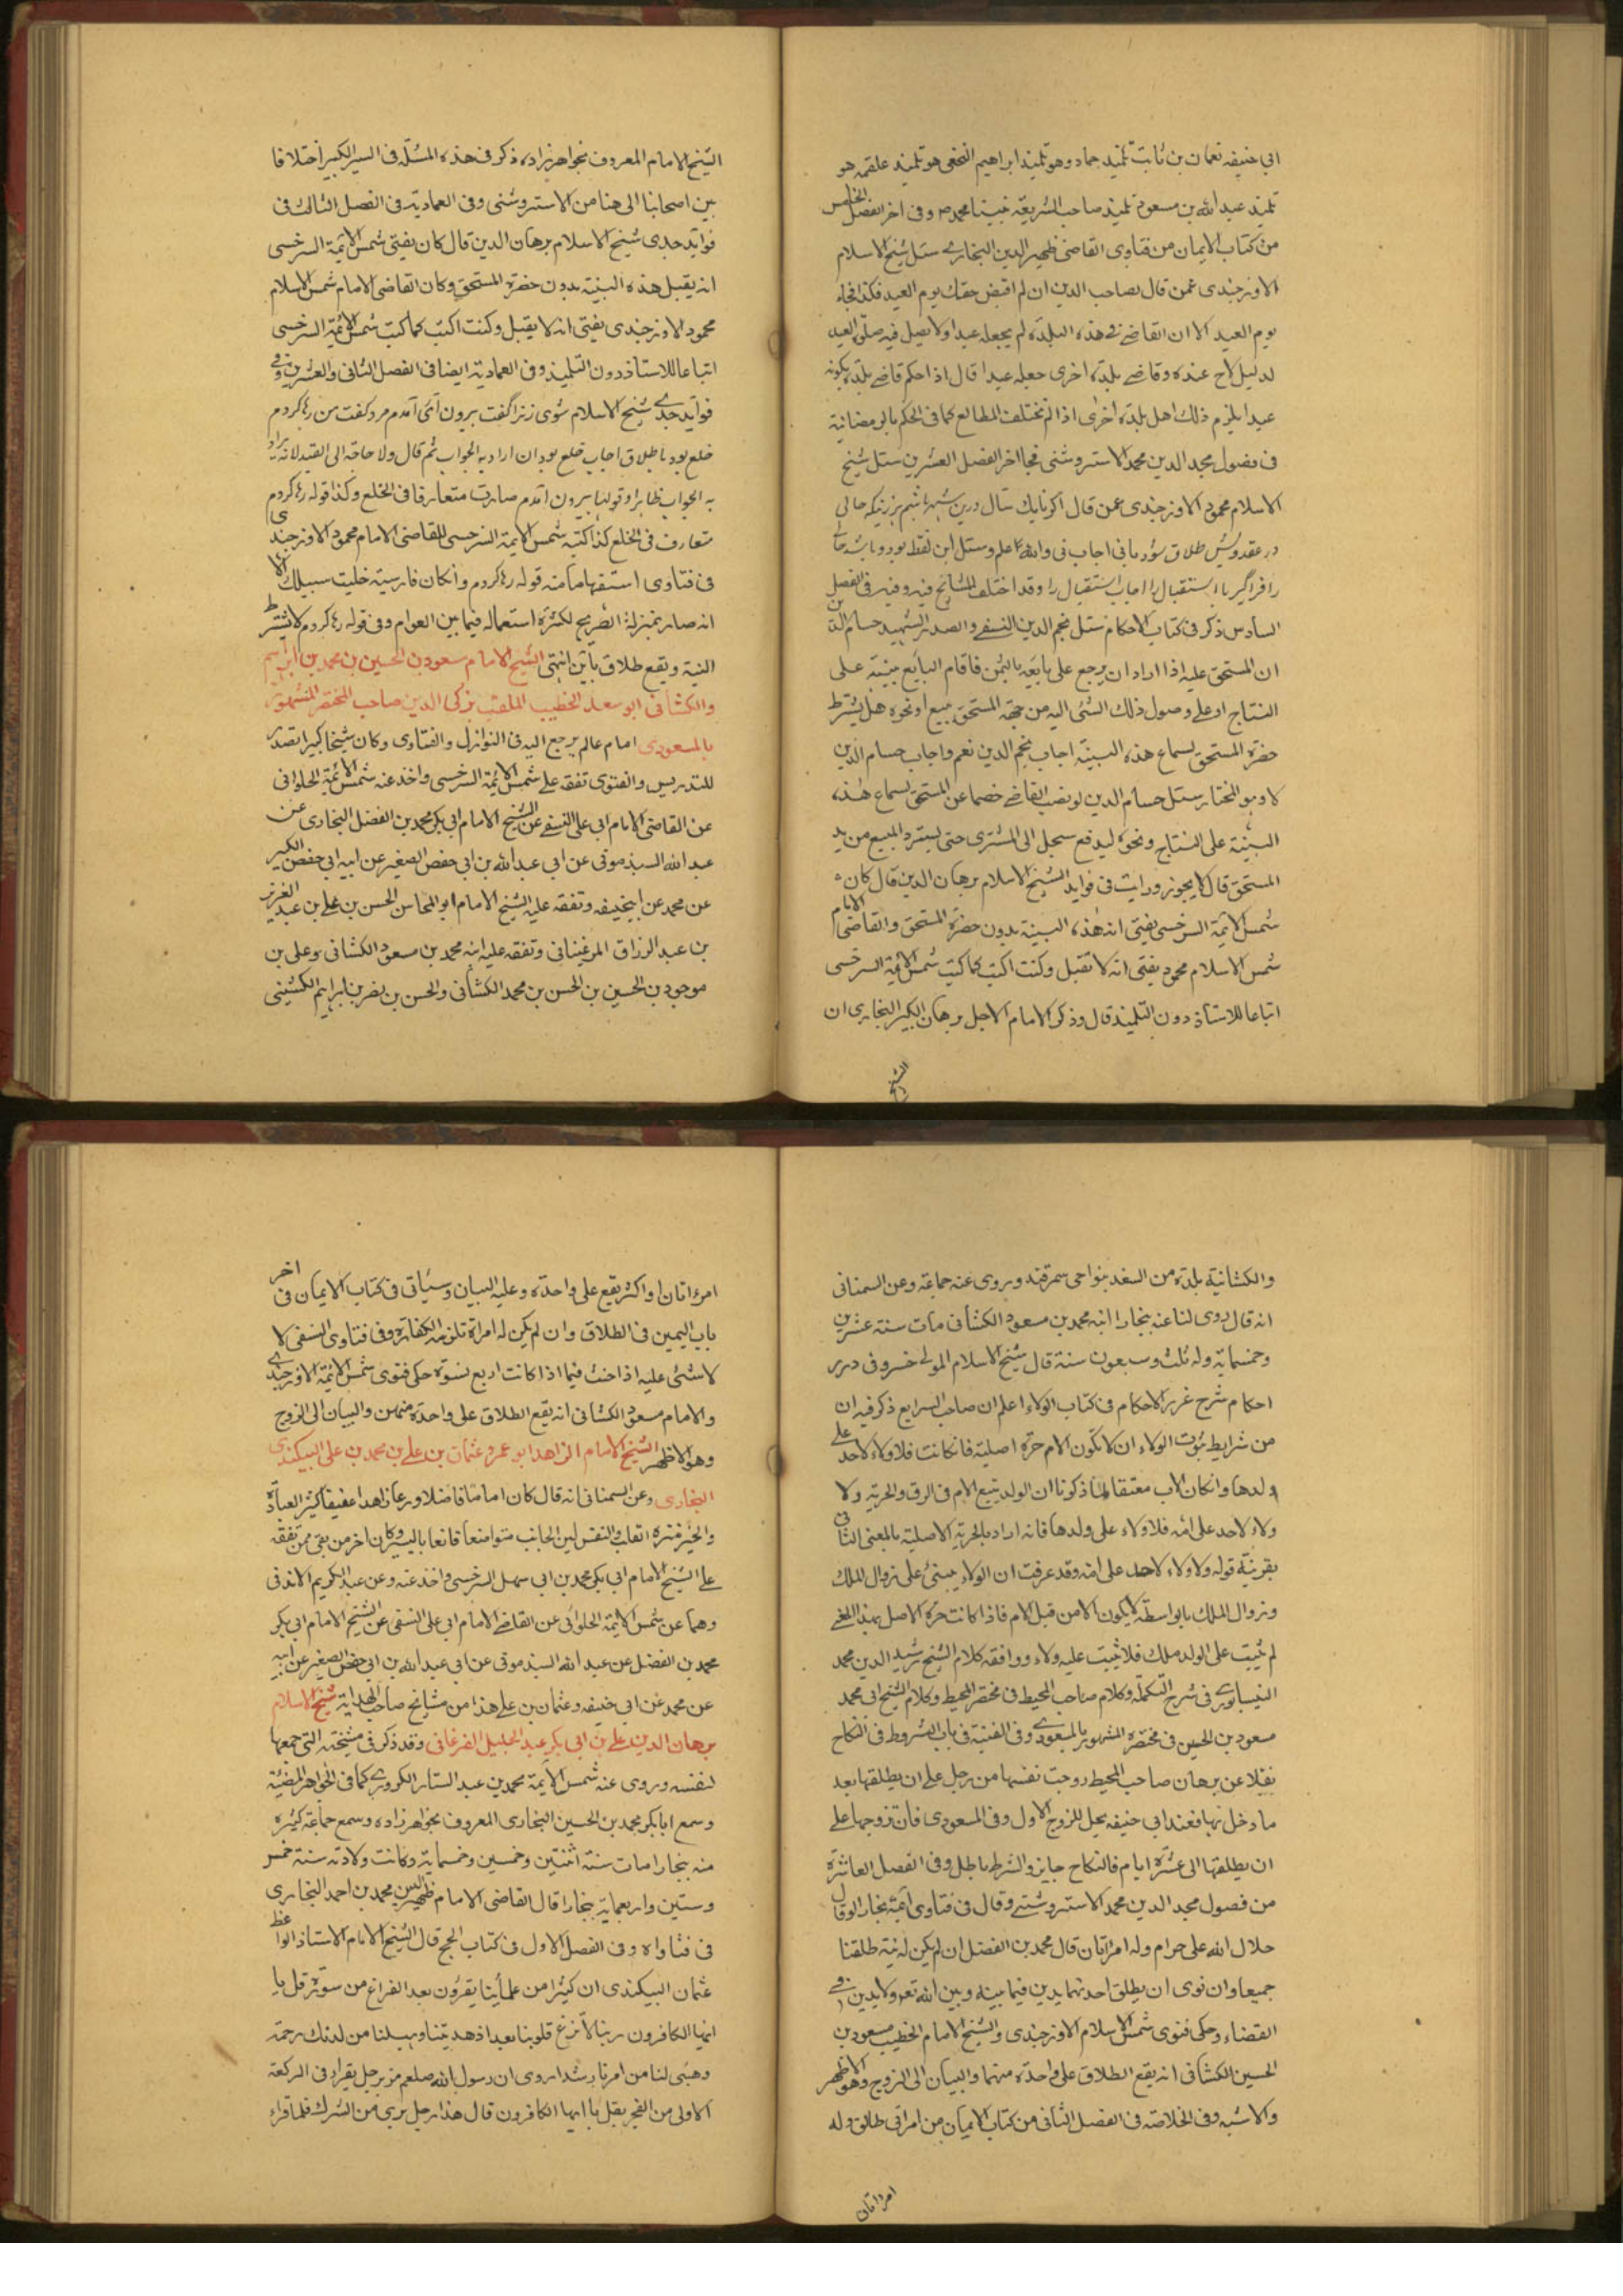 ابي حنيفه نعمان بن ثابت تلميذ حماد وهو تلميذ ابراهيم النخعي هو تلميذ علقمه هو
تلميذ عبد الله بن مسعود تلميذ صاحب الشريعة نبينا محمد ص وفي اخر الفصل الخامس
من كتاب الايمان من فتاوى القاضي ظهير الدين البخاري سئل شيخ الاسلام
الاوزجندى عمن قال لصاحب الدين ان لم اقبض حقك يوم العيد فكذا فجاء
يوم العيد الا ان القاضي في هذه البلدة لم يجعله عيدا ولا يصل فيه صلوة العيد
لدليل لاح عنده وقاضي بلدة اخرى جعله عيدا قال اذا حكم قاضي بلدة بكونه
عيدا يلزم ذلك اهل بلدة اخرى اذا لم تختلف المطالع كما في الحكم بالرمضانية
في فصول مجد الدين محمد الاستروشنى فجا اخر الفصل العشرين سئل شيخ
الاسلام محمود الاوزجندى عمن قال اكر تا يك سال درين شهر باشم هر زنيكه حالى
در عقد ويش طلاق شود يانى اجاب نى والله اعلم وسئل اين لفظ بود وباشد حال
را فراگير يا استقبال را اجاب استقبال را وقد اختلف المشايخ فيه وفيه في الفصل
السادس ذكر في كتاب الاحكام سئل نجم الدين النسفي والصدر الشهيد حسام الدين
ان المستحق عليه اذا اراد ان يرجع على بايعه بالثمن فاقام البايع بينة على
النتاج او على وصول ذلك الشئ اليه من جهة المستحق ببيع او نحوه هل يشترط
حضرة المستحق لسماع هذه البينة اجاب نجم الدين نعم واجاب حسام الدين
لا وهو المختار سئل حسام الدين لو نصب القاضي خصما عن المستحق لسماع هذه
البينة على النتاج ونحوه ليدفع سجل الى المشترى حتى يسترد المبيع من يد
المستحق قال لا يجوز ورايت في فوايد الشيخ الاسلام برهان الدين قال كان
شمس الائمة السرخسى يفتى ان هذه البينة بدون حضرة المستحق والقاضى الامام
شمس الاسلام محمود يفتى انه لا تقبل وكنت اكتب كما كتب شمس الائمة السرخسى
اتباعا للاستاذ دون التلميذ قال وذكر الامام الاجل برهان الكبير البخارى ان
الشيخ
الشيخ الامام المعروف بخواهرزاده ذكر في هذه المسئلة في السير الكبير اختلافا
بين اصحابنا الى هنا من الاستروشنى وفي العمادية في الفصل الثالث في
فوايد جدى شيخ الاسلام برهان الدين قال كان يفتى شمس الائمة السرخسى
انه يقبل هذه البينة بدون حضرة المستحق وكان القاضى الامام شمس الاسلام
محمود الاوزجندى يفتى انه لا يقبل وكنت اكتب كما كتب شمس الائمة السرخسى
اتباعا للاستاذ دون التلميذ وفي العمادية ايضا في الفصل الثانى والعشرين وفي
فوايد جدى شيخ الاسلام شوى زنرا گفت بيرون آى آمدم مرد كفت من رها كردم
خلع بود يا طلاق اجاب خلع بود ان اراد به الجواب ثم قال ولا حاجة الى القيد لانه يراد
به الجواب ظاهرا وقولها بيرون آمدم صارت متعارفا في الخلع وكذا قوله رها كردم
متعارف في الخلع كذا كتبه شمس الايمة السرخسى للقاضى الامام محمود الاوزجندى
في فتاوى استفهاما منه قوله رها كردم وان كان فارسية خليت سبيلك الا
انه صار بمنزلة الصريح لكثرة استعماله فيما بين العوام وفي قوله رها كردم لا يشترط
النية ويقع طلاق باين انتهى الشيخ الامام مسعود بن الحسين بن محمد بن ابراهيم
والكشانى ابو سعد الخطيب الملقب بزكى الدين صاحب المختصر المشهور
بالمسعودى امام عالم يرجع اليه في النوازل والفتاوى وكان شيخا كبيرا تصدر
للتدريس والفتوى تفقه على شمس الائمة السرخسى واخذ عنه شمس الائمة الحلوانى
عن القاضى الامام ابى على النسفي عن الشيخ الامام ابى بكر محمد بن الفضل البخارى عن
عبد الله السبذمونى عن ابى عبد الله بن ابى حفص الصغير عن ابيه ابى حفص الكبير
عن محمد عن ابيحنيفه وتفقه عليه الشيخ الامام ابو المحاسن الحسن بن على بن عبد العزيز
بن عبد الرزاق المرغينانى وتفقه عليه ابنه محمد بن مسعود الكشانى وعلى بن
موجود بن الحسين بن الحسن بن محمد الكشانى والحسن بن نصر بن ابراهيم الكشينى
والكشانية بلدة من السغد بنواحى سمرقند ويروى عنه جماعة وعن السمنانى
انه قال روى لنا عنه بخارا ابنه محمد بن مسعود الكشانى مات سنة عشرين
وخمسماية وله ثلث وسبعون سنة قال شيخ الاسلام المولى خسرو في درر
احكام شرح غرر الاحكام في كتاب الولاء اعلم ان صاحب البدايع ذكر فيه ان
من شرايط ثبوت الولاء ان لا تكون الام حرة اصلية فان كانت فلا ولاء لاحد على
ولدها وان كان الاب معتقا لما ذكرنا ان الولد يتبع الام في الرق والحرية ولا
ولاء لاحد على امه فلا ولاء على ولدها فانه اراد بالحرية الاصلية بالمعنى الثانى
بقرينة قوله ولا ولاء لاحد على امه وقد عرفت ان الولاء يبنئ على زوال الملك
وزوال الملك بالواسطة لا يكون الا من قبل الام فاذا كانت حرة الاصل بهذا المعنى
لم يثبت على الولد ملك فلا يثبت عليه ولاء ووافقه كلام الشيخ رشيد الدين محمد
النيسابورى في شرح التكملة وكلام صاحب المحيط في مختصر المحيط وكلام الشيخ ابى محمد
مسعود بن الحسين في مختصره المشهور بالمسعودى وفي القنية في باب الشروط في النكاح
نقلا عن برهان صاحب المحيط زوجت نفسها من رجل على ان يطلقها بعد
ما دخل بها فعند ابى حنيفه يحل للزوج الاول وفي المسعودى فان تزوجها على
ان يطلقها الى عشرة ايام فالنكاح جايز والشرط باطل وفي الفصل العاشرة
من فصول مجد الدين محمد الاستروشنى وقال في فتاوى ائمة بخارا لو قال
حلال الله على حرام وله امراتان قال محمد بن الفضل ان لم يكن له نية طلقتا
جميعا وان نوى ان يطلق احدتهما يدين فيما بينه وبين الله تع ولا يدين في
القضاء وحكى فتوى شمس الاسلام الاوزجندى والشيخ الامام الخطيب مسعود بن
الحسين الكشانى انه يقع الطلاق على واحدة منهما والبيان الى الزوج وهو الاظهر
والاشبه وفي الخلاصة في الفصل الثانى من كتاب الايمان من امراتى طالق وله
امراتان
امراتان او اكثر يقع على واحدة وعليه البيان وسياتى في كتاب الايمان في اخر
باب اليمين في الطلاق وان لم يكن له امراة تلزمه الكفارة وفي فتاوى النسفى لا
لا شئ عليه اذا حنث فيما اذا كانت اربع نسوة حكى فتوى شمس الائمة الاوزجندى
والامام مسعود الكشانى انه يقع الطلاق على واحدة منهن والبيان الى الزوج
وهو الاظهر الشيخ الامام الزاهد ابو عمرو عثمان بن على بن محمد بن على البيكندى
البخارى وعن السمنانى انه قال كان اماما فاضلا ورعا زاهدا عفيفا كثير العبادة
والخير منزه القلب والنفس لين الجانب متواضعا قانعا باليسير وكان اخر من بقى ممن تفقه
على الشيخ الامام ابى بكر محمد بن ابى سهل السرخسى واخذ عنه وعن عبد الكريم الاندقى
وهما عن شمس الائمة الحلوانى عن القاضى الامام ابى على النسفى عن الشيخ الامام ابى بكر
محمد بن الفضل عن عبد الله السبذمونى عن ابى عبد الله بن ابى حفص الصغير عن ابيه
عن محمد عن ابى حنيفه وعثمان بن على هذا من مشايخ صاحب الهداية شيخ الاسلام
برهان الدين على بن ابى بكر عبد الجليل الفرغانى وقد ذكر في مشيخته التى جمعها
لنفسه وروى عنه شمس الايمة محمد بن عبد الستار الكردرى كما في الجواهر المضيئة
وسمع ابا بكر محمد بن الحسين البخارى المعروف بخواهرزاده وسمع جماعة كثيره
منه بنجارا مات سنة اثنتين وخمسين وخمسماية وكانت ولادته سنة خمس
وستين واربعماية بخارا قال القاضى الامام ظهير الدين محمد بن احمد البخارى
في فتاواه وفي الفصل الاول في كتاب الحج قال الشيخ الامام الاستاذ الواعظ
عثمان البيكندى ان كثيرا من علمائنا يقرؤن بعد الفراغ من سورة قل يا
ايها الكافرون ربنا لا تزغ قلوبنا بعد اذ هديتنا وهب لنا من لدنك رحمة
وهيئ لنا من امرنا رشدا روى ان رسول الله صلعم مر برجل يقرا في الركعة
الاولى من الفجر بقل يا ايها الكافرون قال هذا رجل برى من الشرك فلما قراء